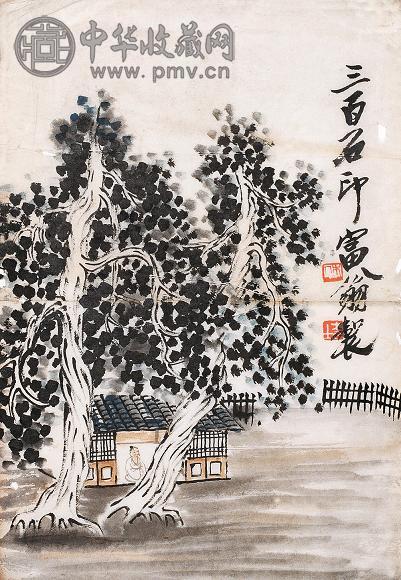 中华收藏网
www.pmv.cn
三百石印富翁製